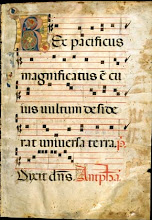 Rex pacificus
magnificatus ē cu
ius vultum deside
rat universa terra. p̄s
Dixit dn̄s. Antipha